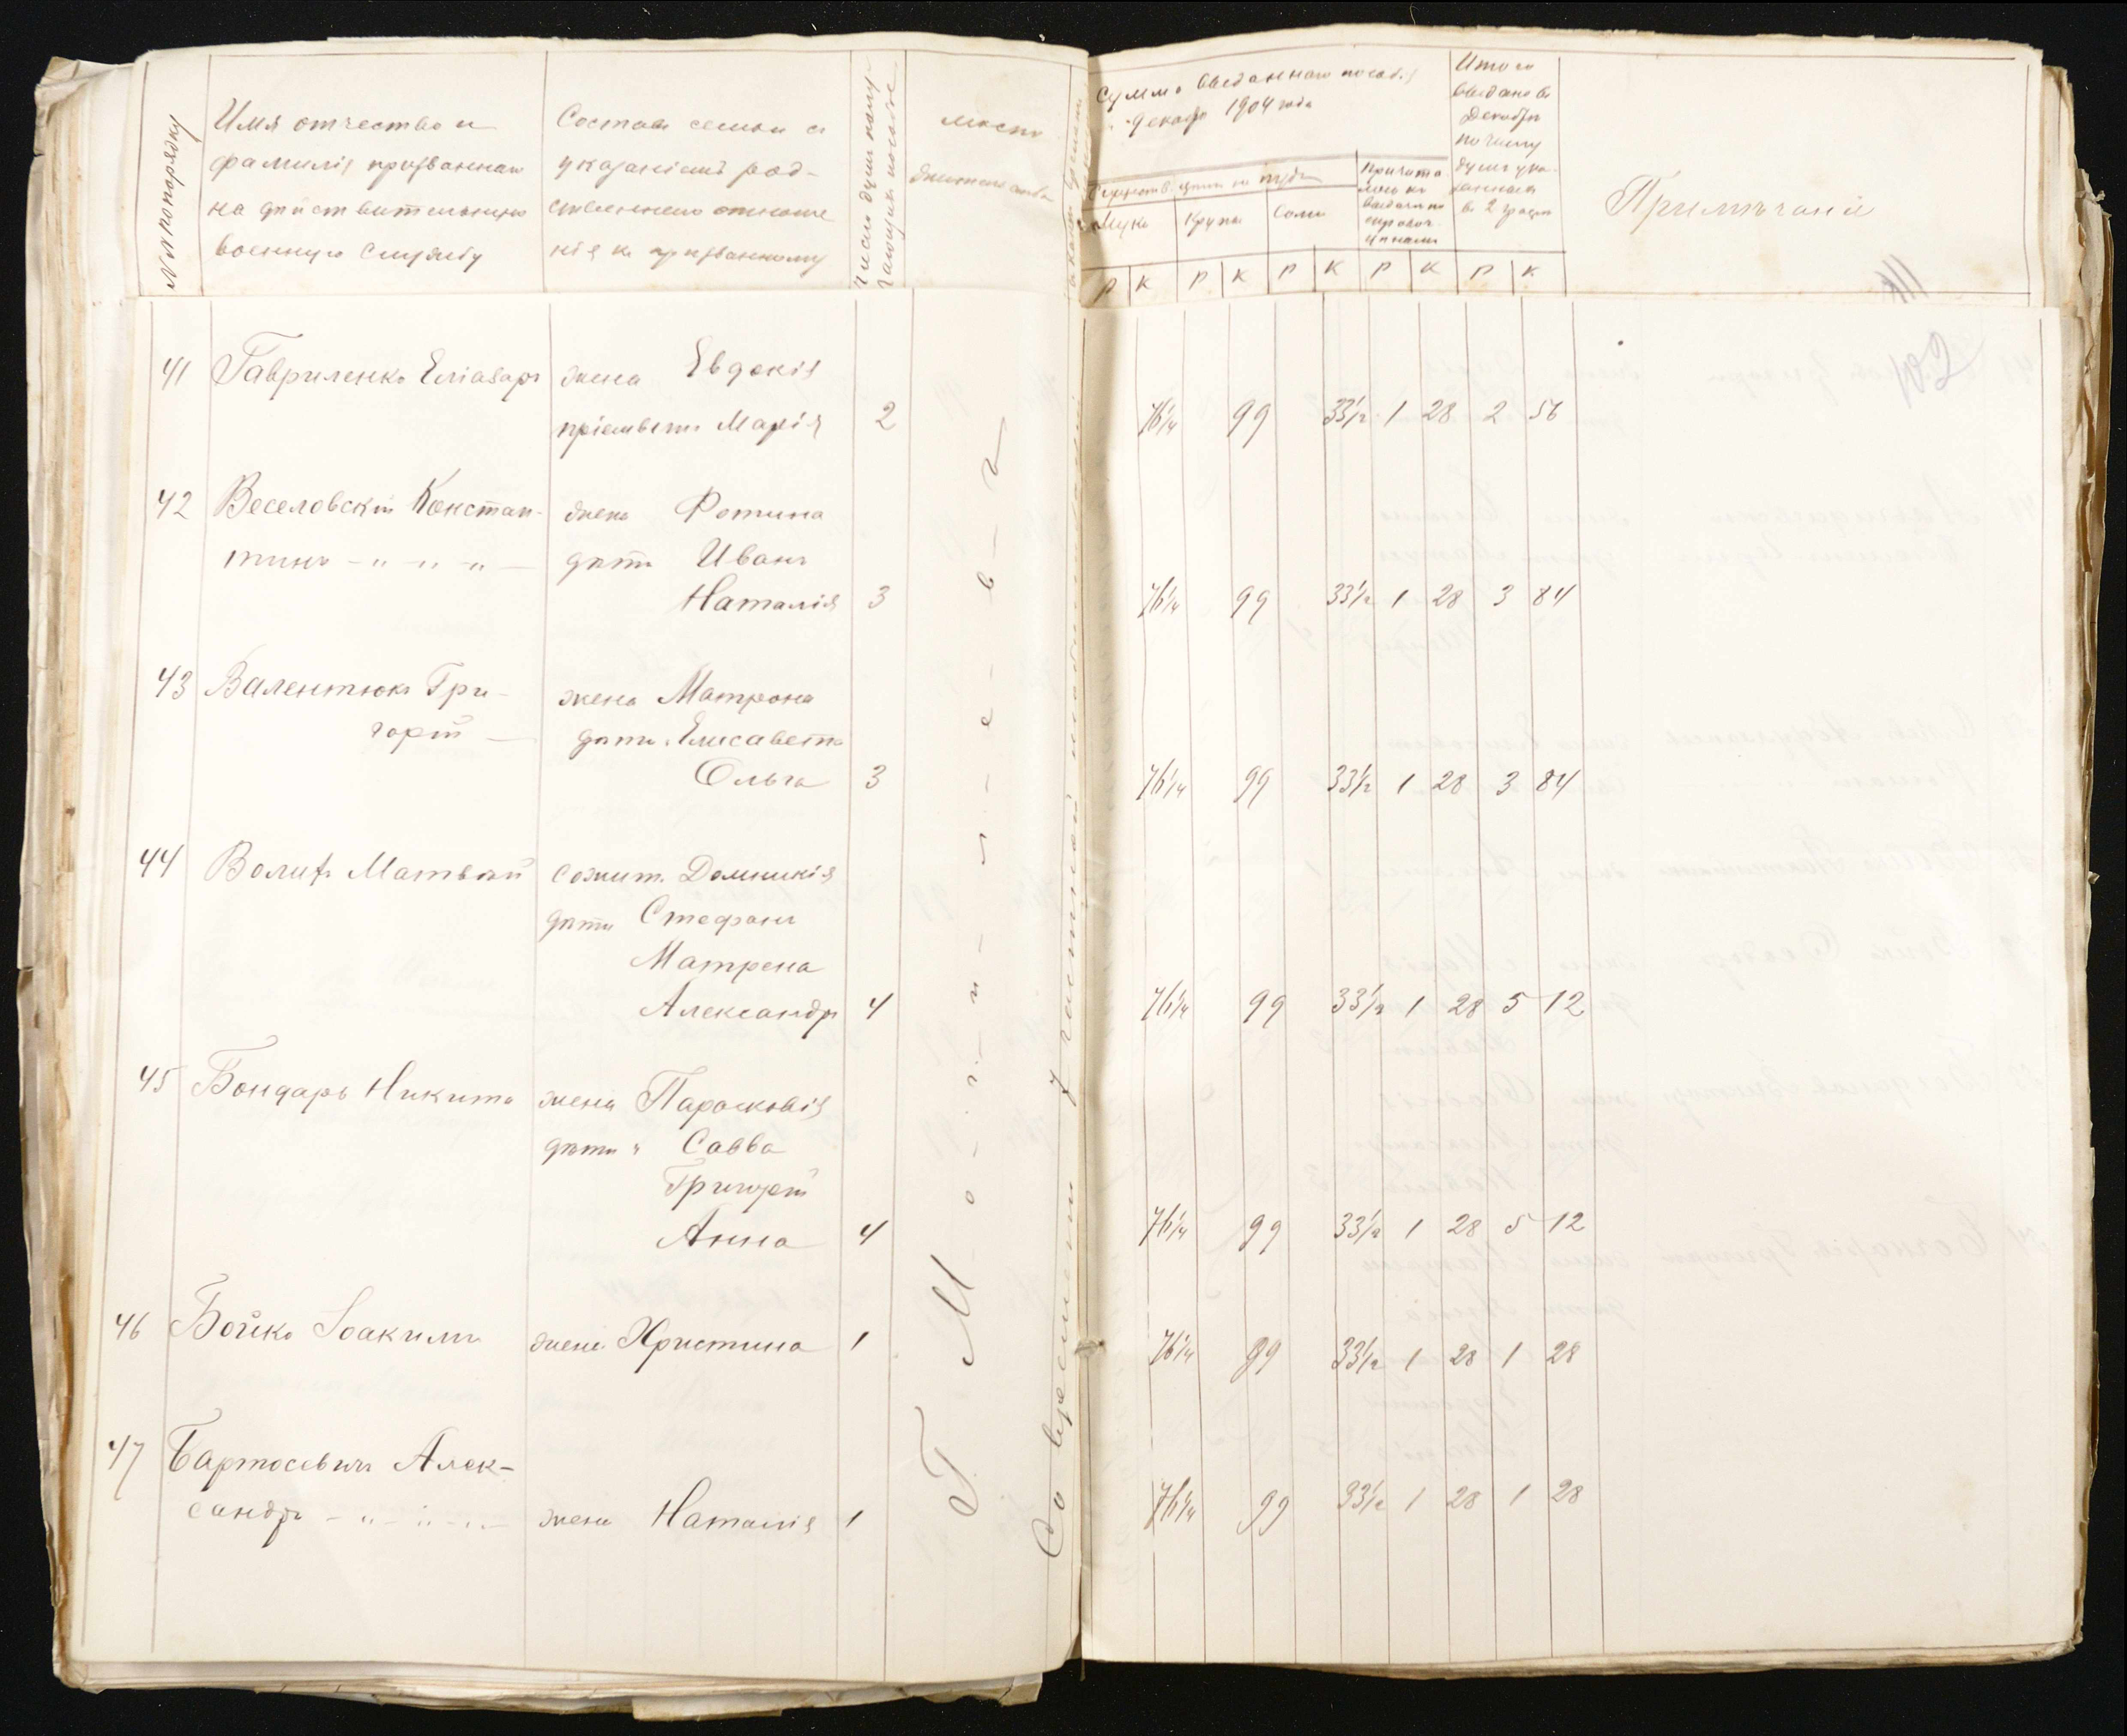 №№ по порядку
Имя отчество и
фамилія призваннаго
на дѣйствительную
военную службу
Составъ семьи съ
указаніемъ род-
ственнаго отноше
нія къ призванному
число душъ полу-
чающихъ пособіе
мѣсто
жительства
Сумма выданнаго пособія
декабрь 1904 года
Мука
Крупа
Соль
Итого
выдано въ
Декабрѣ
по числу
душъ ука-
занныхъ
въ 2 графѣ
Примѣчаніе
Р К Р К Р К Р К Р К
41 Гавриленко Еліазаръ жена Евдокія
пріемышъ Марія 2 76¼ 99 33½ 1 28 2 56
42 Веселовскій Констан- жена Фотина
тинъ - " - " - " - дѣти Иванъ
Наталія 3 76¼ 99 33½ 1 28 3 84
43 Валентюкъ Гри- жена Матрона
горій - дѣти Елисавета
Ольга 3 76¼ 99 33½ 1 28 3 84
44 Матвѣй сожит. Домникія
дѣти Стефанъ
Матрена
Александръ 4 76¼ 99 33½ 1 28 5 12
45 Бондарь Никита жена Параскевія
дѣти " Савва
Григорій
Анна 4 76¼ 99 33½ 1 28 5 12
46 Бойко Іоакимъ жена Христина 1 76¼ 99 33½ 1 28 1 28
47 Бартосевичъ Алек-
сандръ - " - " - " - жена Наталія 1 76¼ 99 33½ 1 28 1 28
Г М-о-г-и-л-е-в-ъ